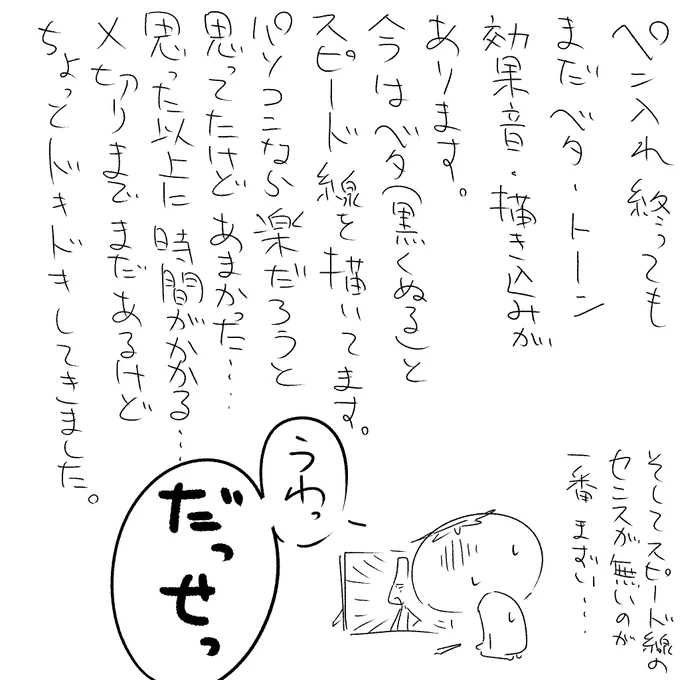 ペン入れ終っても
まだベタ・トーン
効果音・描き込みが
あります。
今はベタ(黒くぬる)と
スピード線を描いてます。
パソコンなら楽だろうと
思ってたけどあまかった…
思った以上に時間がかかる…
〆切りまでまだあるけど
ちょっとドキドキしてきました。
そしてスピード線の
センスが無いのが
一番まずい…
うわっ
だっせっ